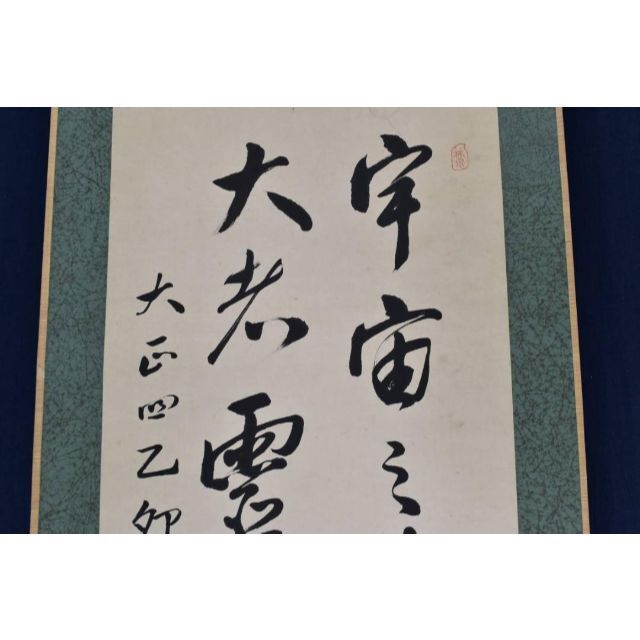 宇宙之
大老靈
大正四乙卯